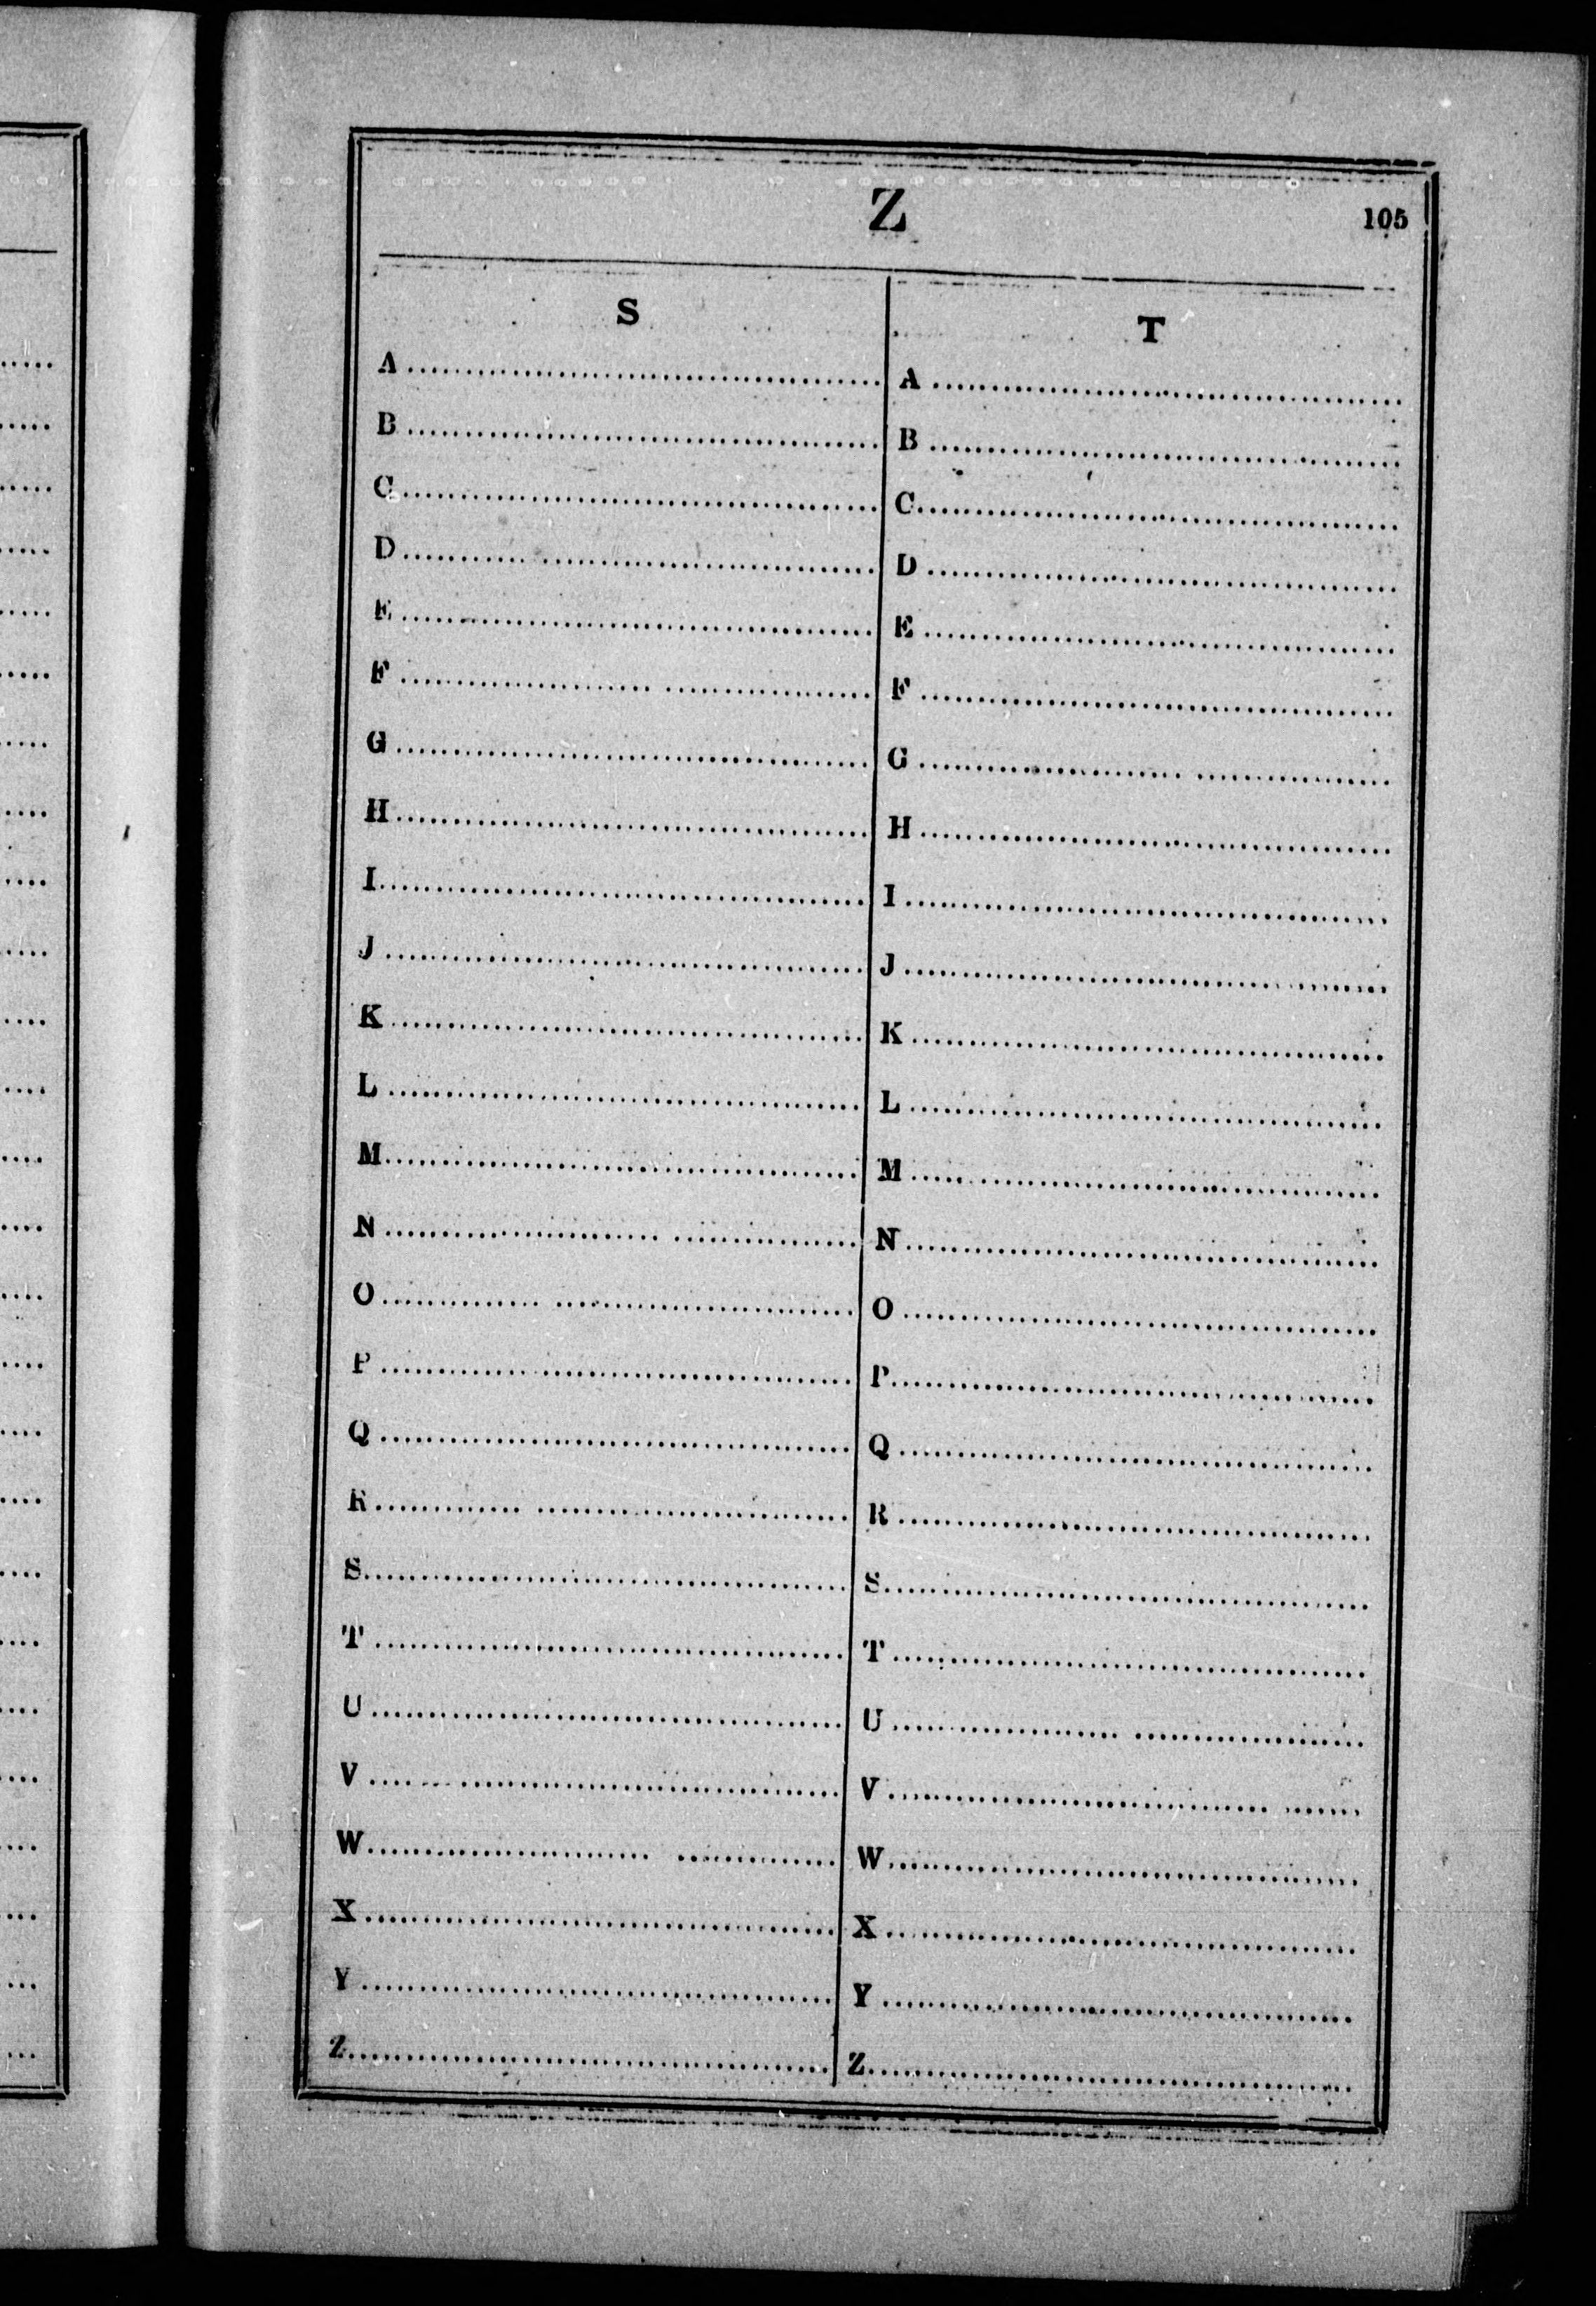 Z 105
S T
A........................................ A........................................
B........................................ B........................................
C........................................ C........................................
D........................................ D........................................
E........................................ E........................................
F........................................ F........................................
G........................................ G........................................
H........................................ H........................................
I........................................ I........................................
J........................................ J........................................
K........................................ K........................................
L........................................ L........................................
M........................................ M........................................
N........................................ N........................................
O........................................ O........................................
P........................................ P........................................
Q........................................ Q........................................
R........................................ R........................................
S........................................ S........................................
T........................................ T........................................
U........................................ U........................................
V........................................ V........................................
W........................................ W........................................
X........................................ X........................................
Y........................................ Y........................................
Z........................................ Z........................................